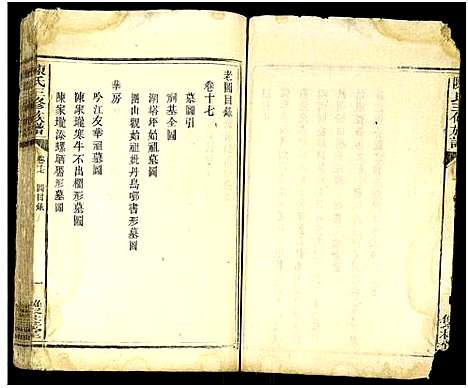 老圖目錄
卷十七
墓圖引
祠基全圖
湖塔坪始祖墓圖
團山觀始祖妣丹鳥啣書形墓圖
華房
吟江友華祖墓圖
陳家壠寒牛不出欄形墓圖
陳家壠添螺晒靨形墓圖
陳氏三修族譜
卷十七
圖目錄
一